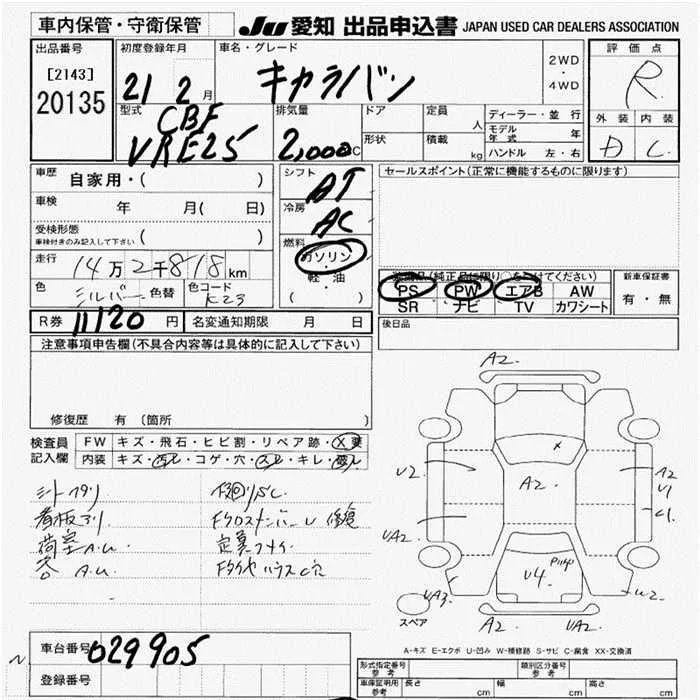 車内保管・守衛保管
JU 愛知 出品申込書 JAPAN USED CAR DEALERS ASSOCIATION
出品番号
[2143]
20135
初度登録年月
21 2 月
車名・グレード
キャラバン
2WD
・
4WD
評価点
R
外装 内装
D C
型式
CBF
VRE25
排気量
2,000cc
ドア
形状
定員 人
積載 kg
ディーラー・並行
モデル年式 年
ハンドル 左・右
車歴
自家用・( )
車検 年 月( 日)
受検形態
車検付きのみ記入して下さい ( )
走行 14万2千818km
色 シルバー 色替 色コード K23
シフト
AT
冷房
AC
燃料
ガソリン
・
軽・油
( )
セールスポイント(正常に機能するものに限ります)
装備品(純正品に限り○をつけてください)
PS PW エアB AW
SR ナビ TV カワシート
新車保証書
有・無
R券 11120 円 名変通知期限 月 日
後日品
注意事項申告欄(不具合内容等は具体的に記入して下さい)
修復歴 有 〔箇所 〕
検査員記入欄
FW キズ・飛石・ヒビ割・リペア跡・X要
内装 キズ・汚れ・コゲ・穴・スレ・キレ・破れ
シートヘタリ
看板剥り
荷室A.U.
A.U.
FクロスメンバーU 修復
A2
U2
A2
A2
U1
C1
UA2
U4
UA3
W2
A2
UA2
スペア
A-キズ E-エクボ U-凹み W-補修跡 S-サビ C-腐食 XX-交換済
車台番号 029905
登録番号
形式指定番号
参考
類別区分番号
参考
車庫証明用
参考
長さ cm 幅 cm 高さ cm